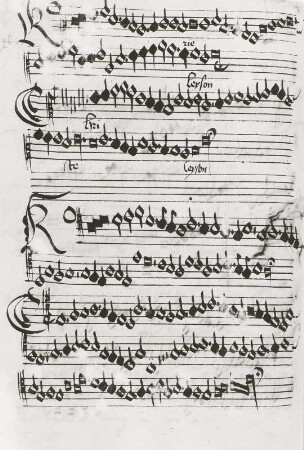 K
rie
leyson
C
Kri
ste
leyson
K
C